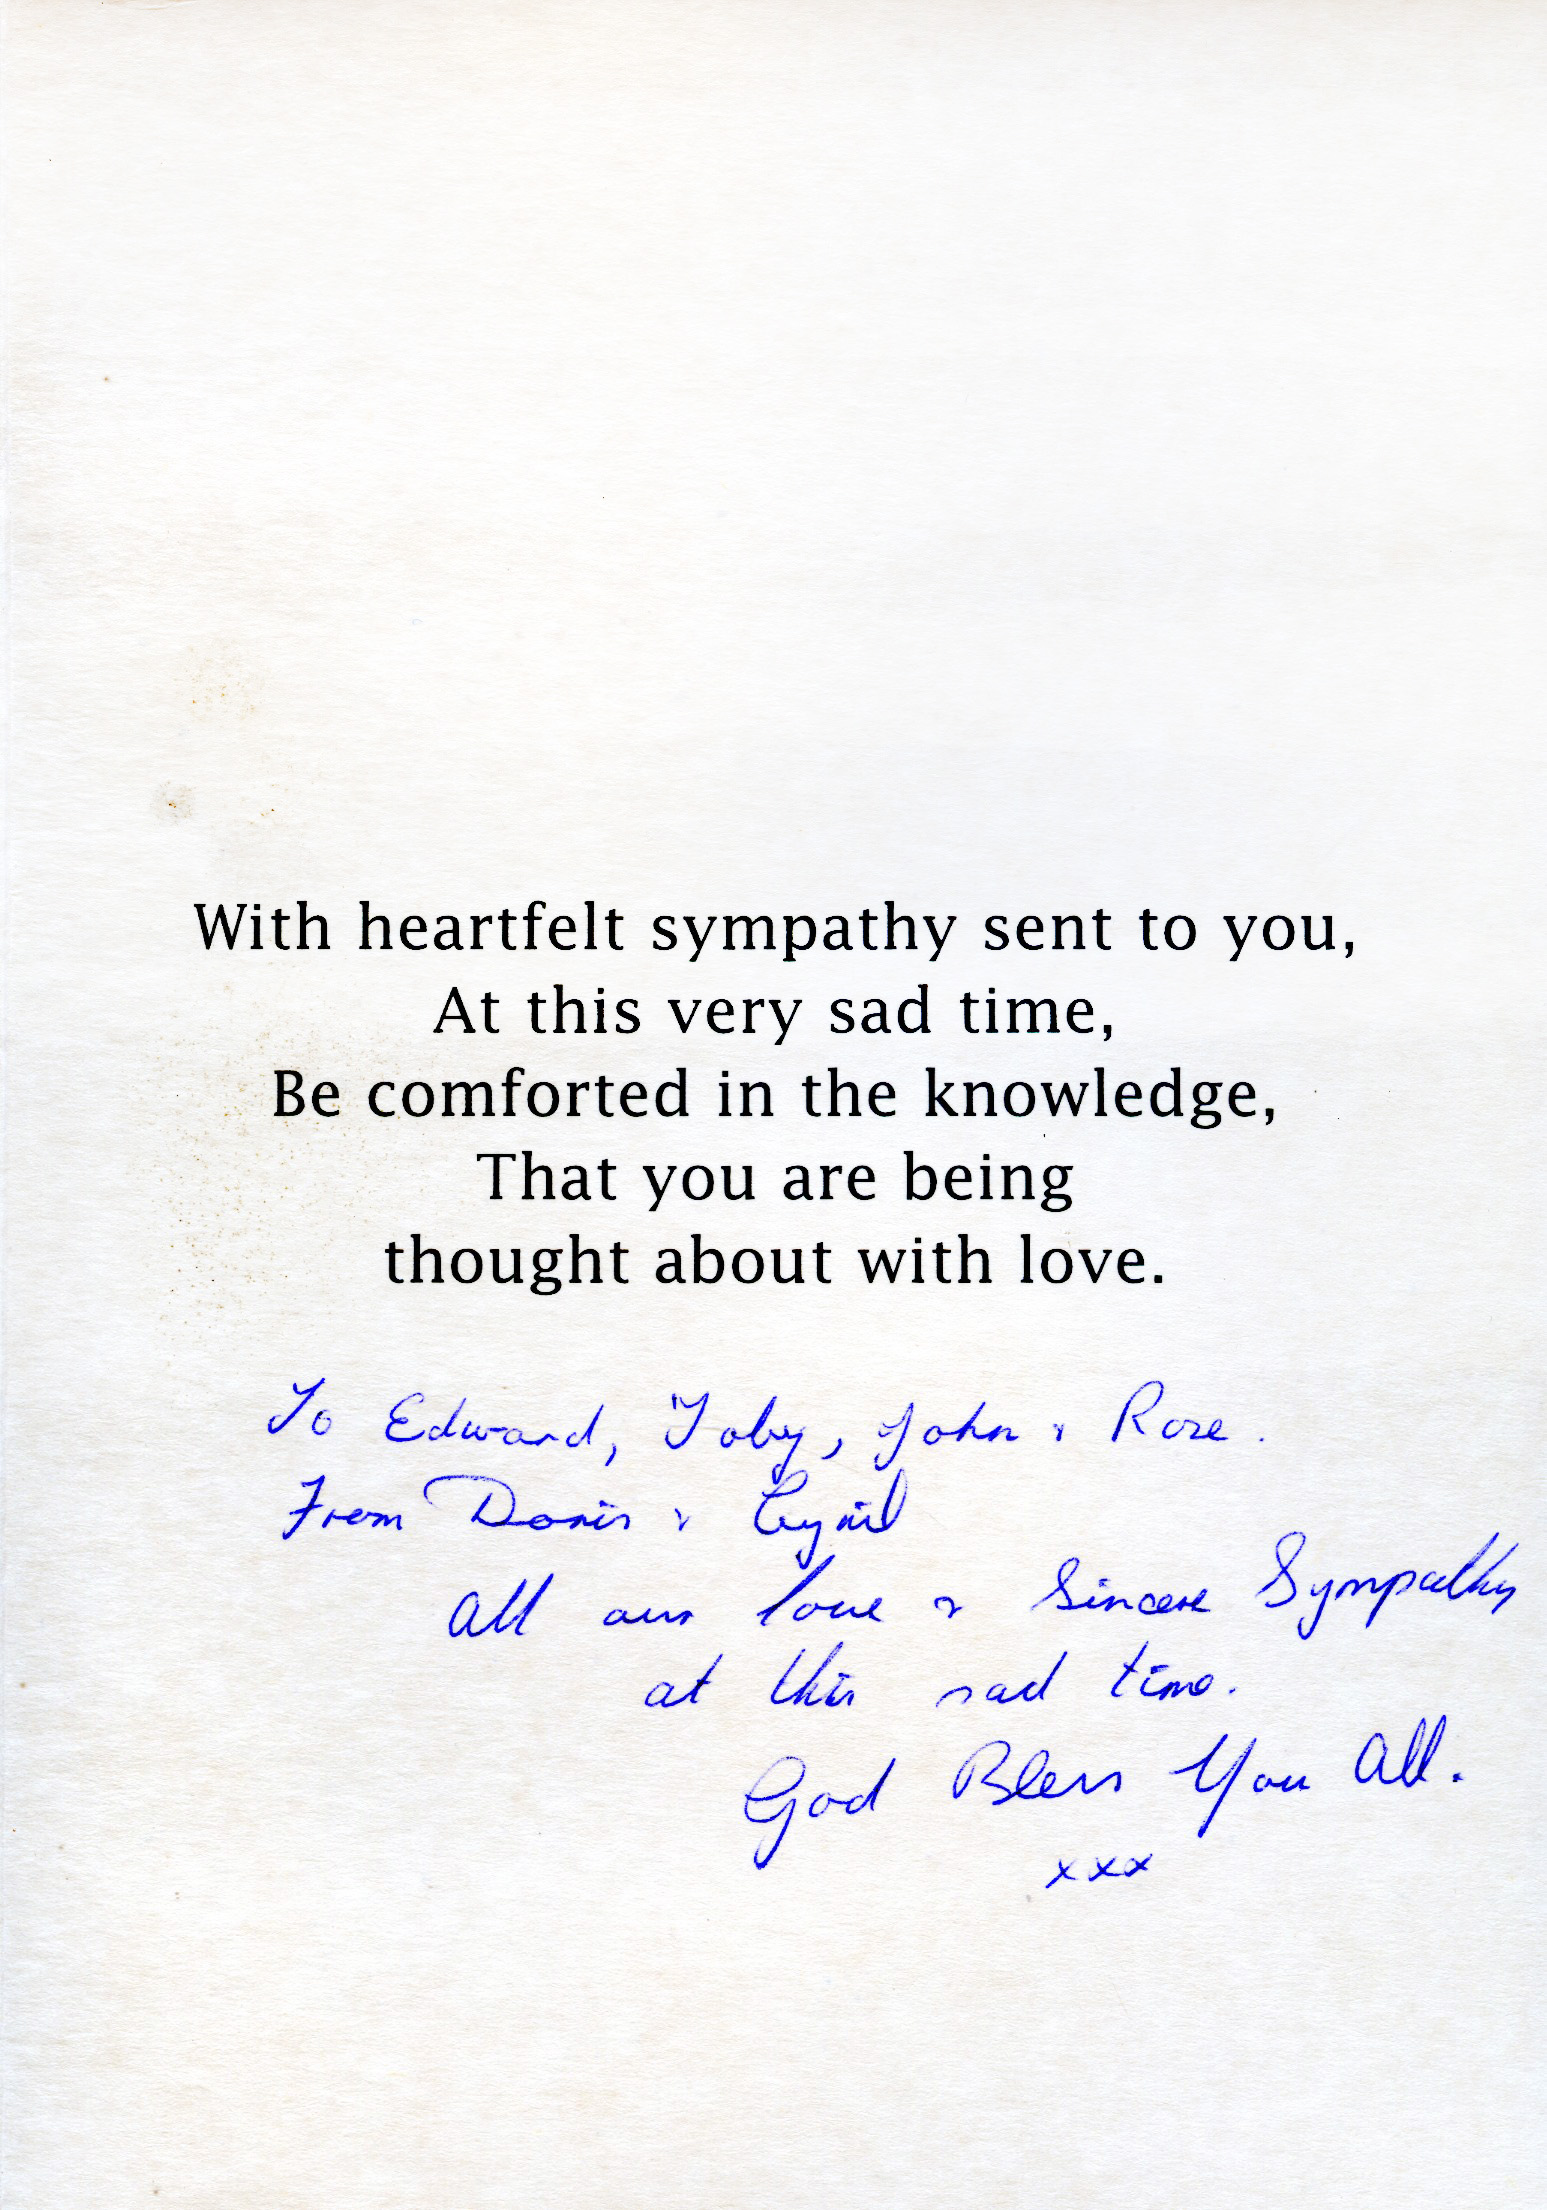 With heartfelt sympathy sent to you,
At this very sad time,
Be comforted in the knowledge,
That you are being
thought about with love.
To Edward, Toby, John & Rose.
From Doris & Cyril
All our love & Sincere Sympathy
at this sad time.
God Bless You All.
xxx